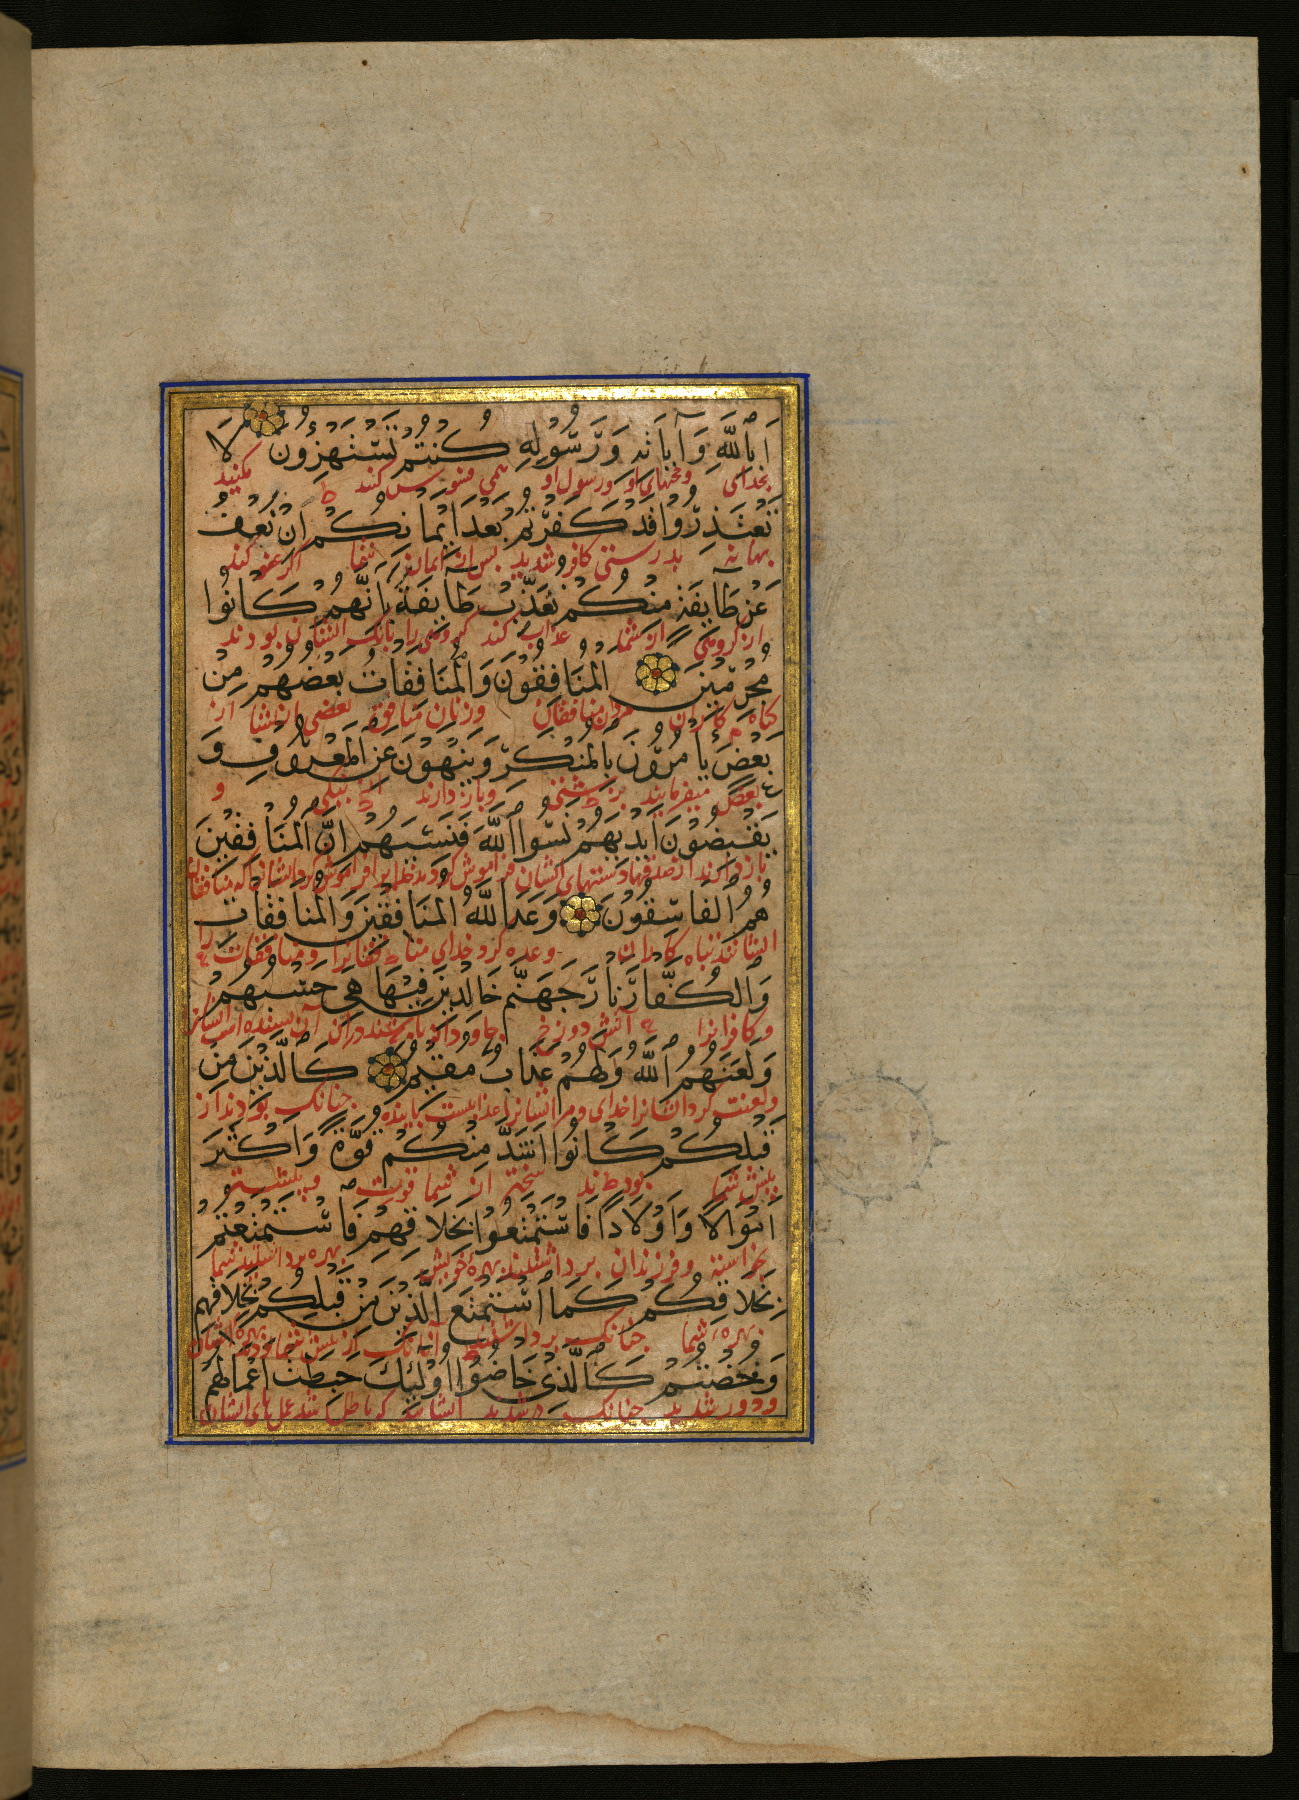 اَبِاللَّهِ وَآيَاتِهِ وَرَسُولِهِ كُنْتُمْ تَسْتَهْزِؤُنَ لَا
بخدای وسخنهای او ورسول او همی فسوس کنند مکنید
تَعْتَذِرُوا قَدْ كَفَرْتُمْ بَعْدَ اِيمَانِكُمْ اِنْ نَعْفُ
بهانه بدرستی کافر شدید پس از ایمان شما اگر عفو کنند
عَنْ طَآئِفَةٍ مِنْكُمْ نُعَذِّبْ طَآئِفَةً بِاَنَّهُمْ كَانُوا
از گروهی از شما عذاب کند گروهی را بانک ایشان بودند
مُجْرِمِينَ اَلْمُنَافِقُونَ وَالْمُنَافِقَاتُ بَعْضُهُمْ مِنْ
کناه کاران مردان منافقان وزنان منافق بعضی ایشان از
بَعْضٍ يَأْمُرُونَ بِالْمُنْكَرِ وَيَنْهَوْنَ عَنِ الْمَعْرُوفِ وَ
بعض میفرمایند بزشتی وباز دارند از نیکی و
يَقْبِضُونَ اَيْدِيَهُمْ نَسُوا اللَّهَ فَنَسِيَهُمْ اِنَّ الْمُنَافِقِينَ
باز دارند از صدقها دستهای ایشان فراموش کردند خدایرا فراموش کرد ایشانرا که منافقان
هُمُ الْفَاسِقُونَ وَعَدَ اللَّهُ الْمُنَافِقِينَ وَالْمُنَافِقَاتِ
ایشانند تباه کاران وعده کرد خدای منافقانرا ومنافقات را
وَالْكُفَّارَ نَارَ جَهَنَّمَ خَالِدِينَ فِيهَا هِيَ حَسْبُهُمْ
وکافرانرا آتش دوزخ جاودان باشند دران آن بسنده است ایشانرا
وَلَعَنَهُمُ اللَّهُ وَلَهُمْ عَذَابٌ مُقِيمٌ كَالَّذِينَ مِنْ
ولعنت کرد ایشانرا خدای ومر ایشانرا عذابیست پاینده چنانک بودند از
قَبْلِكُمْ كَانُوا اَشَدَّ مِنْكُمْ قُوَّةً وَاَكْثَرَ
پیش شما بودند سختر از شما قوت وبیشتر
اَمْوَالًا وَاَوْلَادًا فَاسْتَمْتَعُوا بِخَلَاقِهِمْ فَاسْتَمْتَعْتُمْ
بخواسته وفرزندان برداشتند بهرهٔ خویش بهره برداشتید شما
بِخَلَاقِكُمْ كَمَا اسْتَمْتَعَ الَّذِينَ مِنْ قَبْلِكُمْ بِخَلَاقِهِمْ
بهرهٔ شما چنانک برداشتند آنانک از پیش شما بودند بهرهٔ ایشان
وَخُضْتُمْ كَالَّذِي خَاضُوا اُولَئِكَ حَبِطَتْ اَعْمَالُهُمْ
ودور شدید چنانک در شدند ایشانند که باطل شد عمل های ایشان